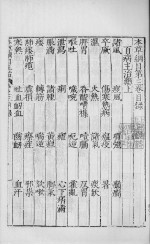 本草綱目第三卷目錄
百病主治藥上
諸風 痓風 項強 癲癇
卒厥 傷寒熱病 瘟疫 暑
濕 火熱 諸氣 痰飲
脾胃 吞酸嘈雜 噎膈 反胃
嘔吐 噦啘 呃逆 霍亂
泄瀉 痢 瘧 心下痞滿
脹滿 諸腫 黃疸 脚氣
痿 轉筋 喘逆 咳嗽
肺痿肺癰 虛損 瘵疰 邪祟
寒熱 吐血衄血 齒衄 血汗